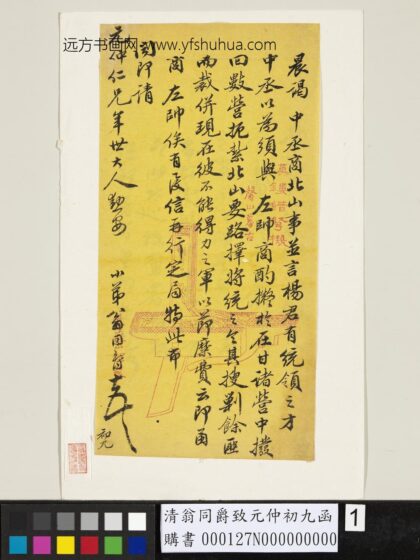 远方书画网 www.yfshuhua.com
晨謁 中丞商北山事並言楊君有統領之才
中丞以為須與 左帥商酌擬於在甘諸營中撥
回數營扼紮北山要路擇將統之令其搜剿餘匪
而裁併現在彼不能得力之軍以節糜費云即函
商 左帥俟有復信再行定局特此布
聞即請
仲仁兄年世大人勛安
小弟翁同爵頓首
初九
清翁同爵致元仲初九函
購書 000127N000000000
1